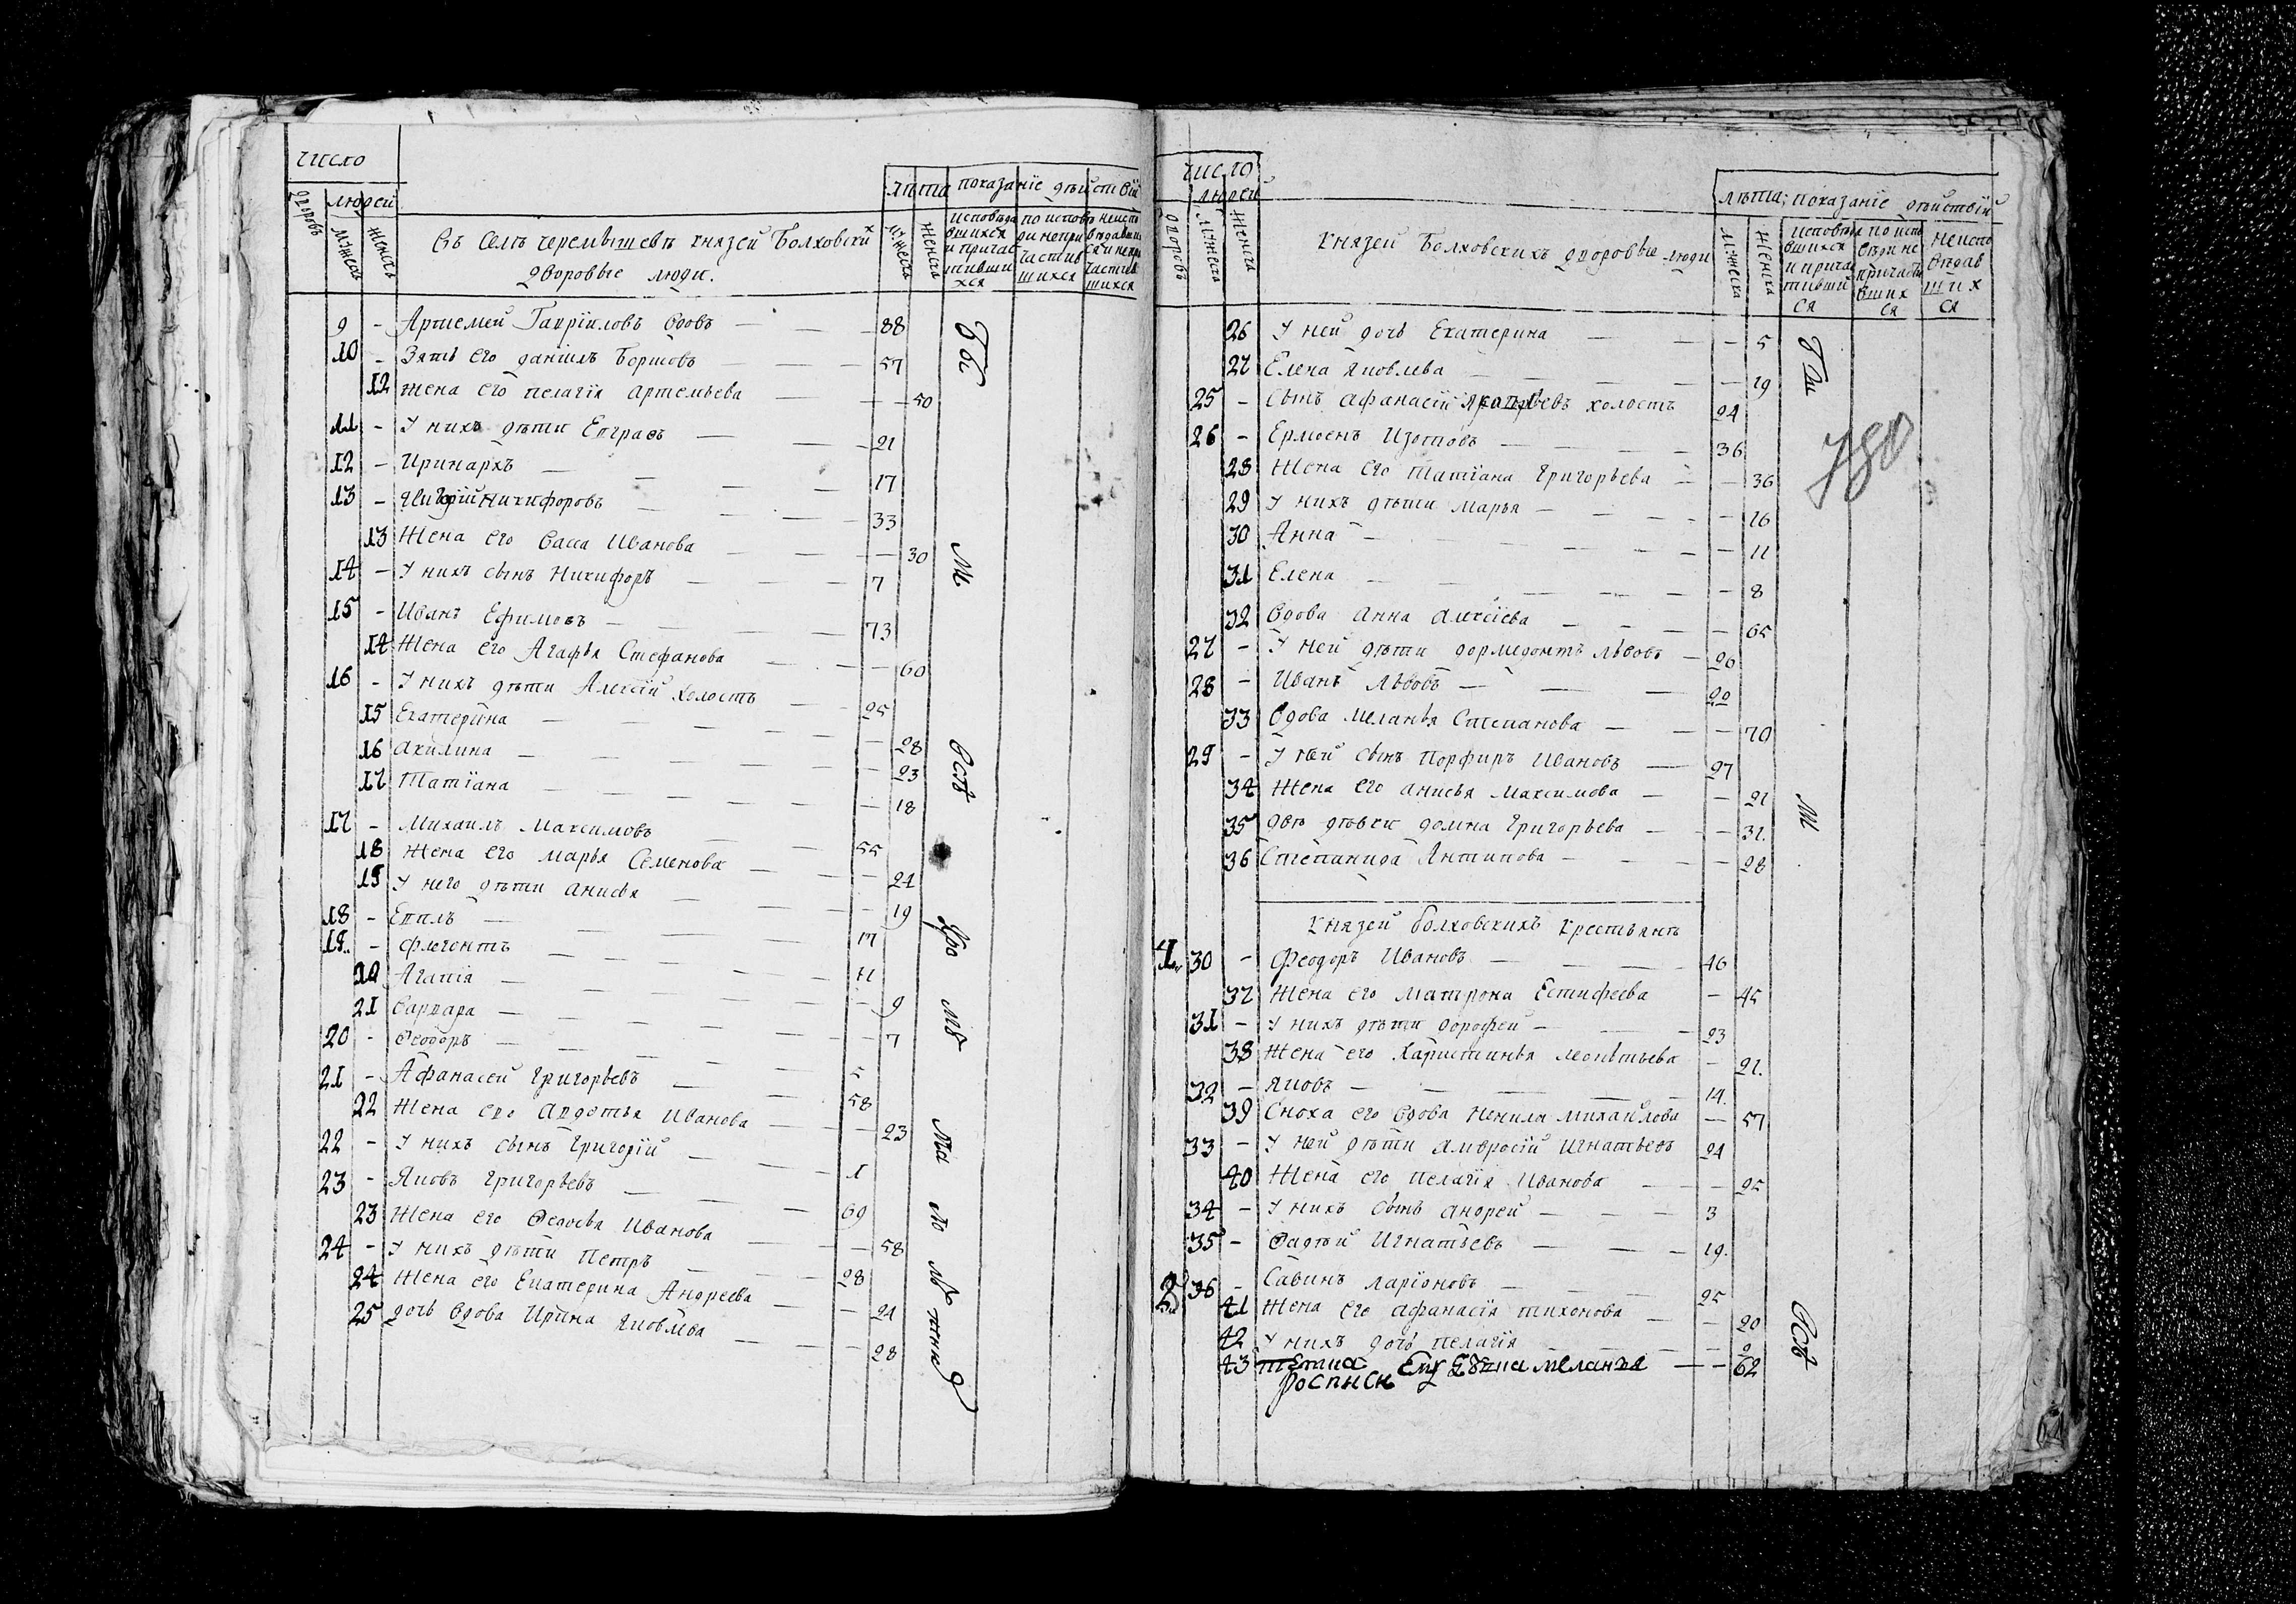 число
дворовъ
людей
мужеска
женска
Въ Селѣ черемышевѣ князей Болховских
дворовые люди.
лѣта
показанїе дѣйствїй
мужеска
женска
исповѣда
вшихся
и причас
тивши
хся
по испов
ди непри
частив
шихся
неиспо
вѣдавши
ся и непри
частив
шихся
9 - Артемей Гаврїиловъ вдовъ — — — 88
10 - Зять его данїилъ Боршовъ — — — 57
12 жена его пелагїя Артемьева — — — 50
11 - У нихъ дѣти Евграфъ — — — 21
12 - Иринархъ — — — 17
13 - Григорїй Никифоровъ — — — 33
13 Жена его Васса Иванова — — — 30
14 - У нихъ сынъ Никифоръ — — — 7
15 - Иванъ Ефимовъ — — — 73
14 Жена его Агафья Стефанова — — — 60
16 - У нихъ дѣти Алексїй холостъ — — 25
15 Екатерина — — — 28
16 Акилина — — — 23
17 Татїана — — — 18
17 - Михаилъ Максимовъ — — 55
18 Жена его марья Семенова — — 24
19 У него дѣти Анисья — — — 19
18 - Евплъ — — — 17
19 - Флегонтъ — — — 11
20 Агапїа — — — 9
21 Варвара — — — 7
20 - Феодоръ — — — 5
21 - Афанасей Григорьевъ — — 58
22 Жена его Авдотья Иванова — — 23
22 - У нихъ сынъ Григорїй — — 1
23 - Яковъ Григорьевъ — — 69
23 Жена его Федосья Иванова — — 58
24 - У нихъ дѣти Петръ — — 28
24 Жена его Екатерина Андреева — — 24
25 дочь вдова Ирина Яковлева — — 28
число
дворовъ
людей
мужеска
женска
князей Болховскихъ дворовые люди
лѣта
показанїе дѣйствїй
мужеска
женска
исповѣда
вшихся
и прича
тивши
ся
по испо
вѣди не
причасти
вших
ся
неиспо
вѣдав
ших
ся
26 У ней дочь Екатерина — — — 5
27 Елена Яковлева — — — 19
25 - Сынъ Афанасїй холостъ 24
26 - Ермогенъ Изотовъ — — — 36
28 Жена его Татїана Григорьева — — 36
29 У нихъ дѣти Марья — — — 16
30 Анна — — — 11
31 Елена — — — 8
32 Вдова Анна Алексїева — — — 65
27 - У ней дѣти дормедонтъ Львовъ — 26
28 - Иванъ Львовъ — — — 22
33 Вдова меланья Степанова — — — 70
29 - У ней сынъ Порфиръ Ивановъ — 27
34 Жена его анисья Максимова — — 21
35 двѣ дѣвки домна Григорьева — — 31.
36 Степанида Антипова — — — 28
Князей болховскихъ крестьянъ
1 30 - Феодоръ Ивановъ — — — 46
37 Жена его Матрона Естифеева — 45
31 - У нихъ дѣти дорофей — — — 23
38 Жена его Харистинья леонтьева — 21.
32 - Яковъ — — — 14.
39 Сноха его вдова Ненила Михайлова — 57
33 - У ней дѣти Амвросїй Игнатьевъ 24
40 Жена его пелагїя Иванова — — 25
34 - У нихъ сынъ Андрей — — — 3
35 - Фадѣй Игнатьевъ — — — 19.
2 36 - Савинъ Ларїоновъ — — — 25
41 Жена его Афанасїя тихонова — — 20
42 У нихъ дочь пелагїя — — 2
43 тетка Ему меланья — — 62
росписи
780